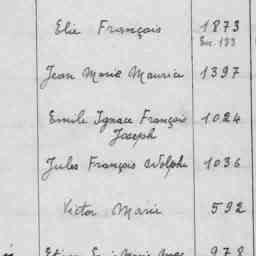 Elie François 1873
Exc. 133
Jean Marie Maurice 1397
Emile Ignace François 1024
Joseph
Jules François Adolphe 1036
Victor Marie 592
978